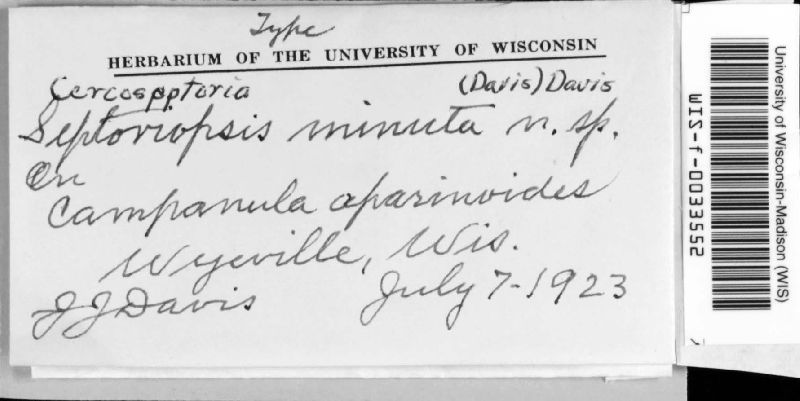 Type
HERBARIUM OF THE UNIVERSITY OF WISCONSIN
Cercoseptoria (Davis) Davis
Septoriopsis minuta n. sp.
On
Campanula aparinoides
Wyeville, Wis.
J J Davis July 7-1923
WIS-f-0033552
University of Wisconsin-Madison (WIS)